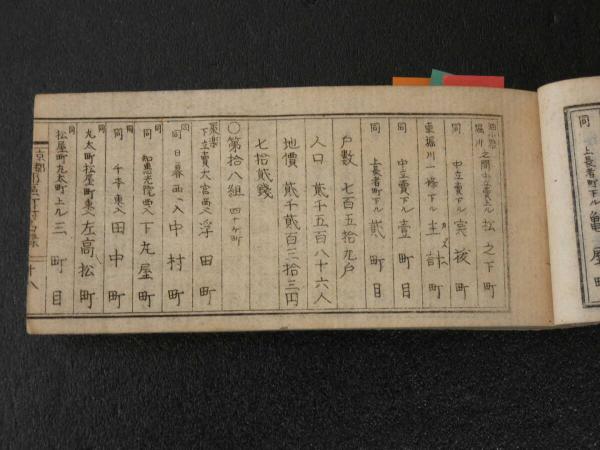 同 上長者町下ル 亀屋町
油小路堀川ノ間中立賣上ル 松之下町
同 中立賣下ル 実被町
東堀川一條下ル 主計町
同 中立賣下ル 壹町目
同 上長者町下ル 貳町目
戸數 七百五拾九戸
人口 貳千五百八十六人
地價 貳千貳百三拾三円
七拾貳錢
〇第拾八組 四十ヶ町
聚楽 下立賣大宮西ヘ入 浮田町
同 日暮西ヘ入 中村町
同 智恵光院西ヘ入 下丸屋町
同 千本東ヘ入 田中町
同 丸太町松屋町東ヘ入 左高松町
同 松屋町丸太町上ル 三町目
十八